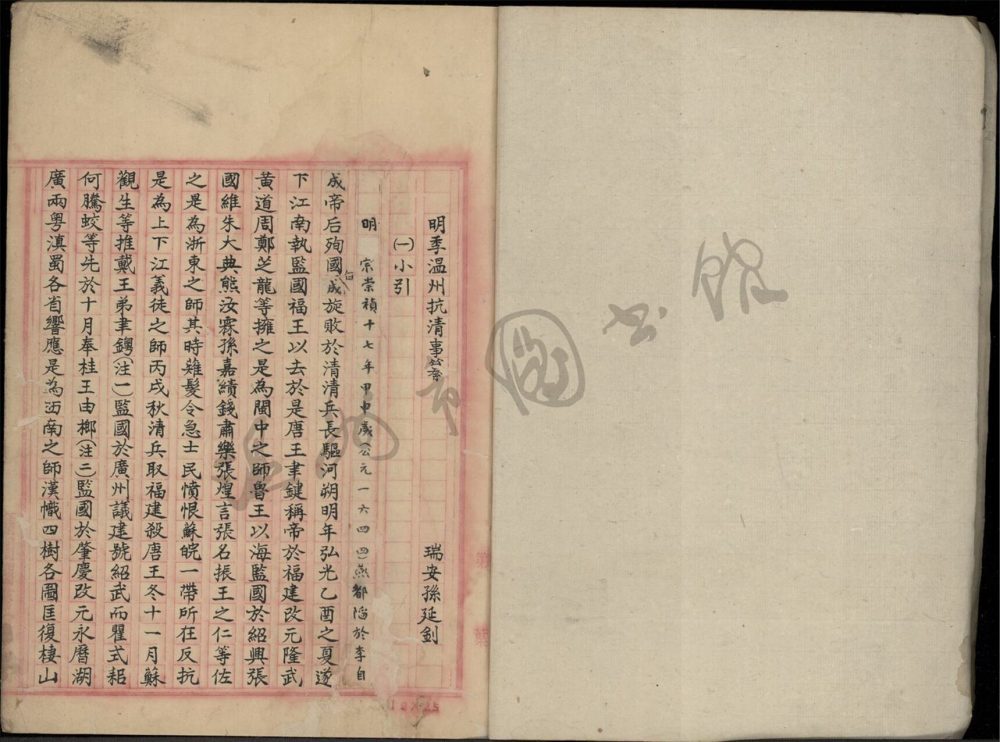 明季温州抗清事纂
瑞安孫延釗
㈠小引
明　宗崇禎十七年甲申歲(公元一六四四)燕都陷於李自
成帝后殉國自成旋敗於清清兵長驅河朔明年弘光乙酉之夏遂
下江南執監國福王以去於是唐王聿鍵稱帝於福建改元隆武
黃道周鄭芝龍等擁之是為閩中之師魯王以海監國於紹興張
國維朱大典熊汝霖孫嘉績錢肅樂張煌言張名振王之仁等佐
之是為浙東之師其時薙髮令急士民憤恨蘇皖一帶所在反抗
是為上下江義徒之師丙戌秋清兵取福建殺唐王冬十一月蘇
觀生等推戴王弟聿𨮁(注一)監國於廣州議建號紹武而瞿式耜
何騰蛟等先於十月奉桂王由榔(注二)監國於肇慶改元永曆湖
廣兩粵滇蜀各省響應是為西南之師漢幟四樹各圖匡復棲山
18×25
溫州市圖書館